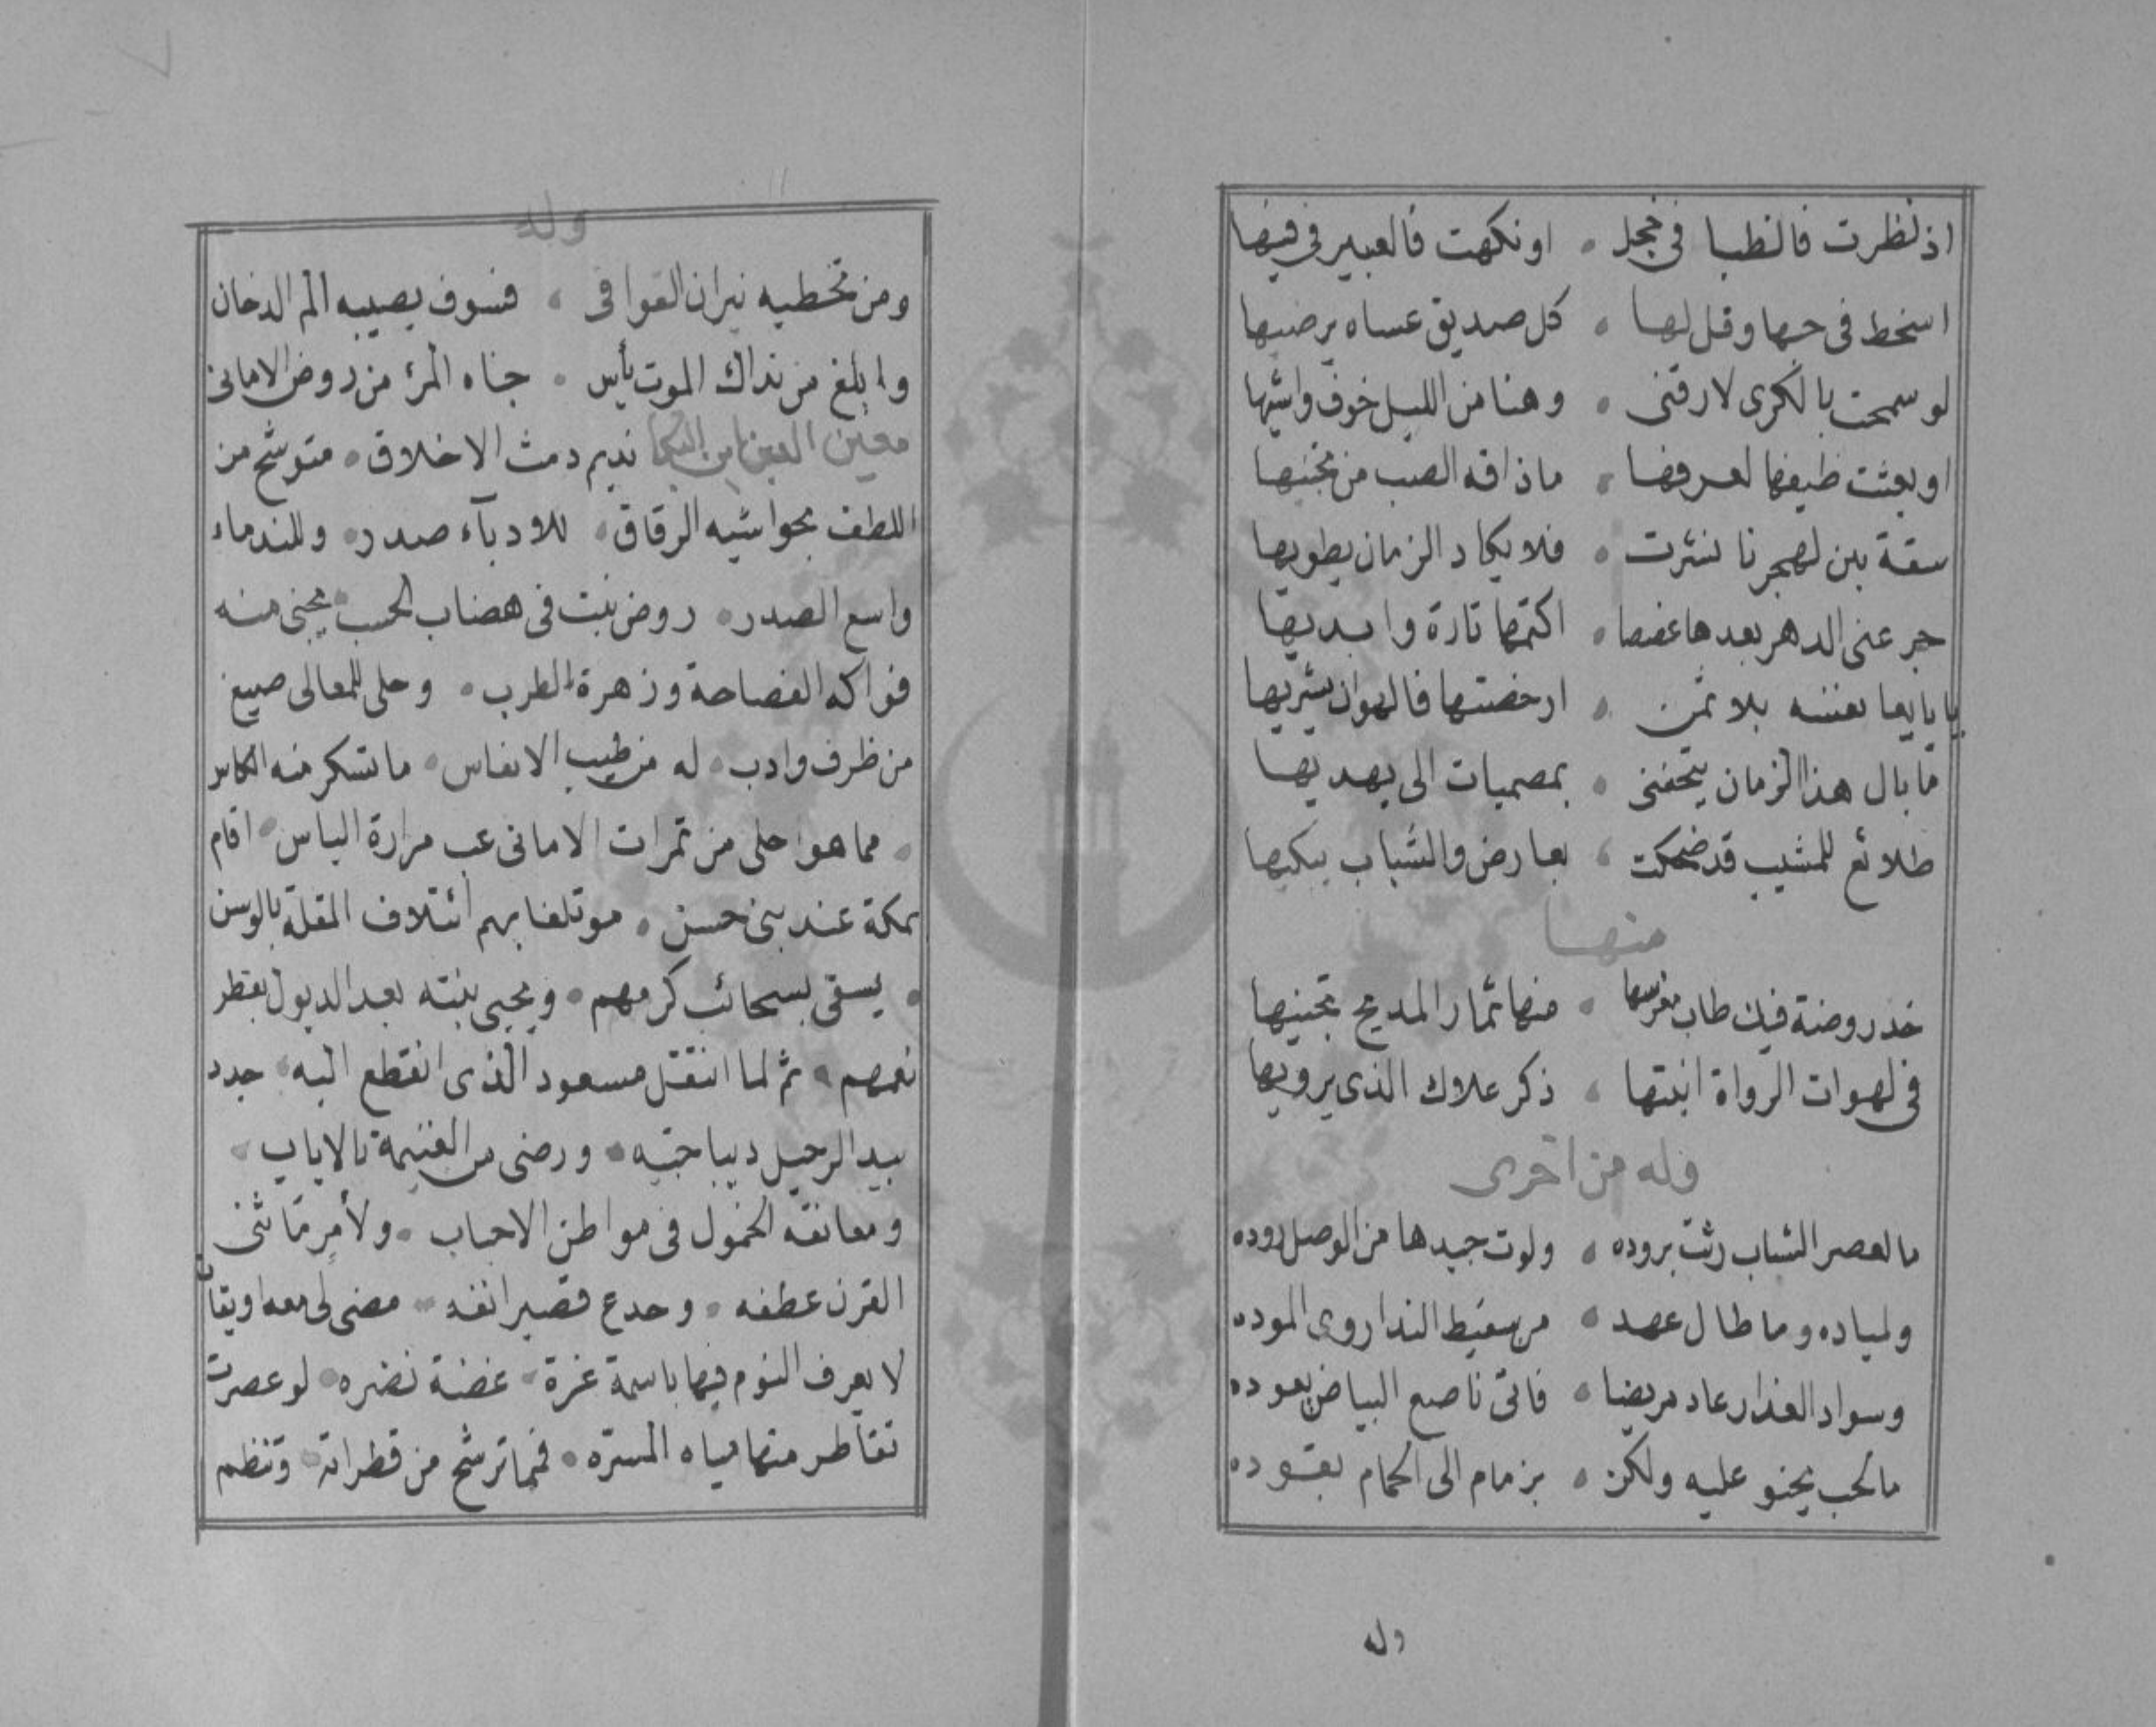 اذ نظرت فالظبا في خجل • او نكهت فالعبير في فيها
اسخط في حبها وقل لها • كل صديق عساه يرضيها
لو سمحت بالكرى لارقني • وهنا من الليل خوف واشيها
او بعثت طيفها لعرفها • ماذاقه الصب من تجنيها
سقة بين لهجرنا نشرت • فلا يكاد الزمان يطويها
جرعني الدهر بعدها غصصا • اكتمها تارة وابديها
يا بايعا نفسه بلا ثمن • ارخصتها فالهوان يشريها
ما بال هذا الزمان يتحفني • بمصميات الى يهديها
طلائع للمشيب قد ضحكت • بعارض والشباب يبكيها
منها
خذ روضة فيك طاب مغرسها • منها ثمار المديح تجنيها
في لهوات الرواة انبتها • ذكر علاك الذي يرويها
وله من اخرى
ما لعصر الشباب رثت بروده • ولوت جيدها من الوصل روده
ولمياده وما طال عهد • من سقيط الندا روى الموده
وسواد العذار عاد مريضا • فاتى ناصع البياض يعوده
مالحب يحنو عليه ولكن • بزمام الى الحمام يقوده
وله
وله
ومن تخطيه نيران القوافى • فسوف يصيبه الم الدخان
وابلغ من نداك الموت يأس • جناه المرء من روض الامانى
معين ابن البكا نديم دمث الاخلاق • متوشح من
اللطف بحواشيه الرقاق • للادبآء صدر • وللندماء
واسع الصدر • روض نبت في هضاب الحسب • يجنى منه
فواكه الفصاحة وزهرة الطرب • وحلى للمعالى صيغ
من ظرف وادب • له من طيب الانفاس • ما تسكر منه الكاس
• مما هو احلى من تمرات الامانى عب مرارة الياس • اقام
بمكة عند بنى حسن • موتلفا بهم ائتلاف المقلة بالوسن
• يسقى بسحائب كرمهم • ويحيى نبته بعد الذبول بقطر
نعمهم • ثم لما انتقل مسعود الذى انقطع اليه • جدد
بيد الرحيل ديباجته • ورضى من الغنيمة بالاياب •
ومعانقه الخمول فى مواطن الاحباب • ولأمر مَا ثنى
القرن عطفه • وجدع قصير انفه • مضى لى معه اويقات
لا يعرف النوم فيها باسمة غرة • غضة نضره • لو عصرت
تقاطر منها مياه المسرّه • فمما ترشح من قطراته • وتنظم